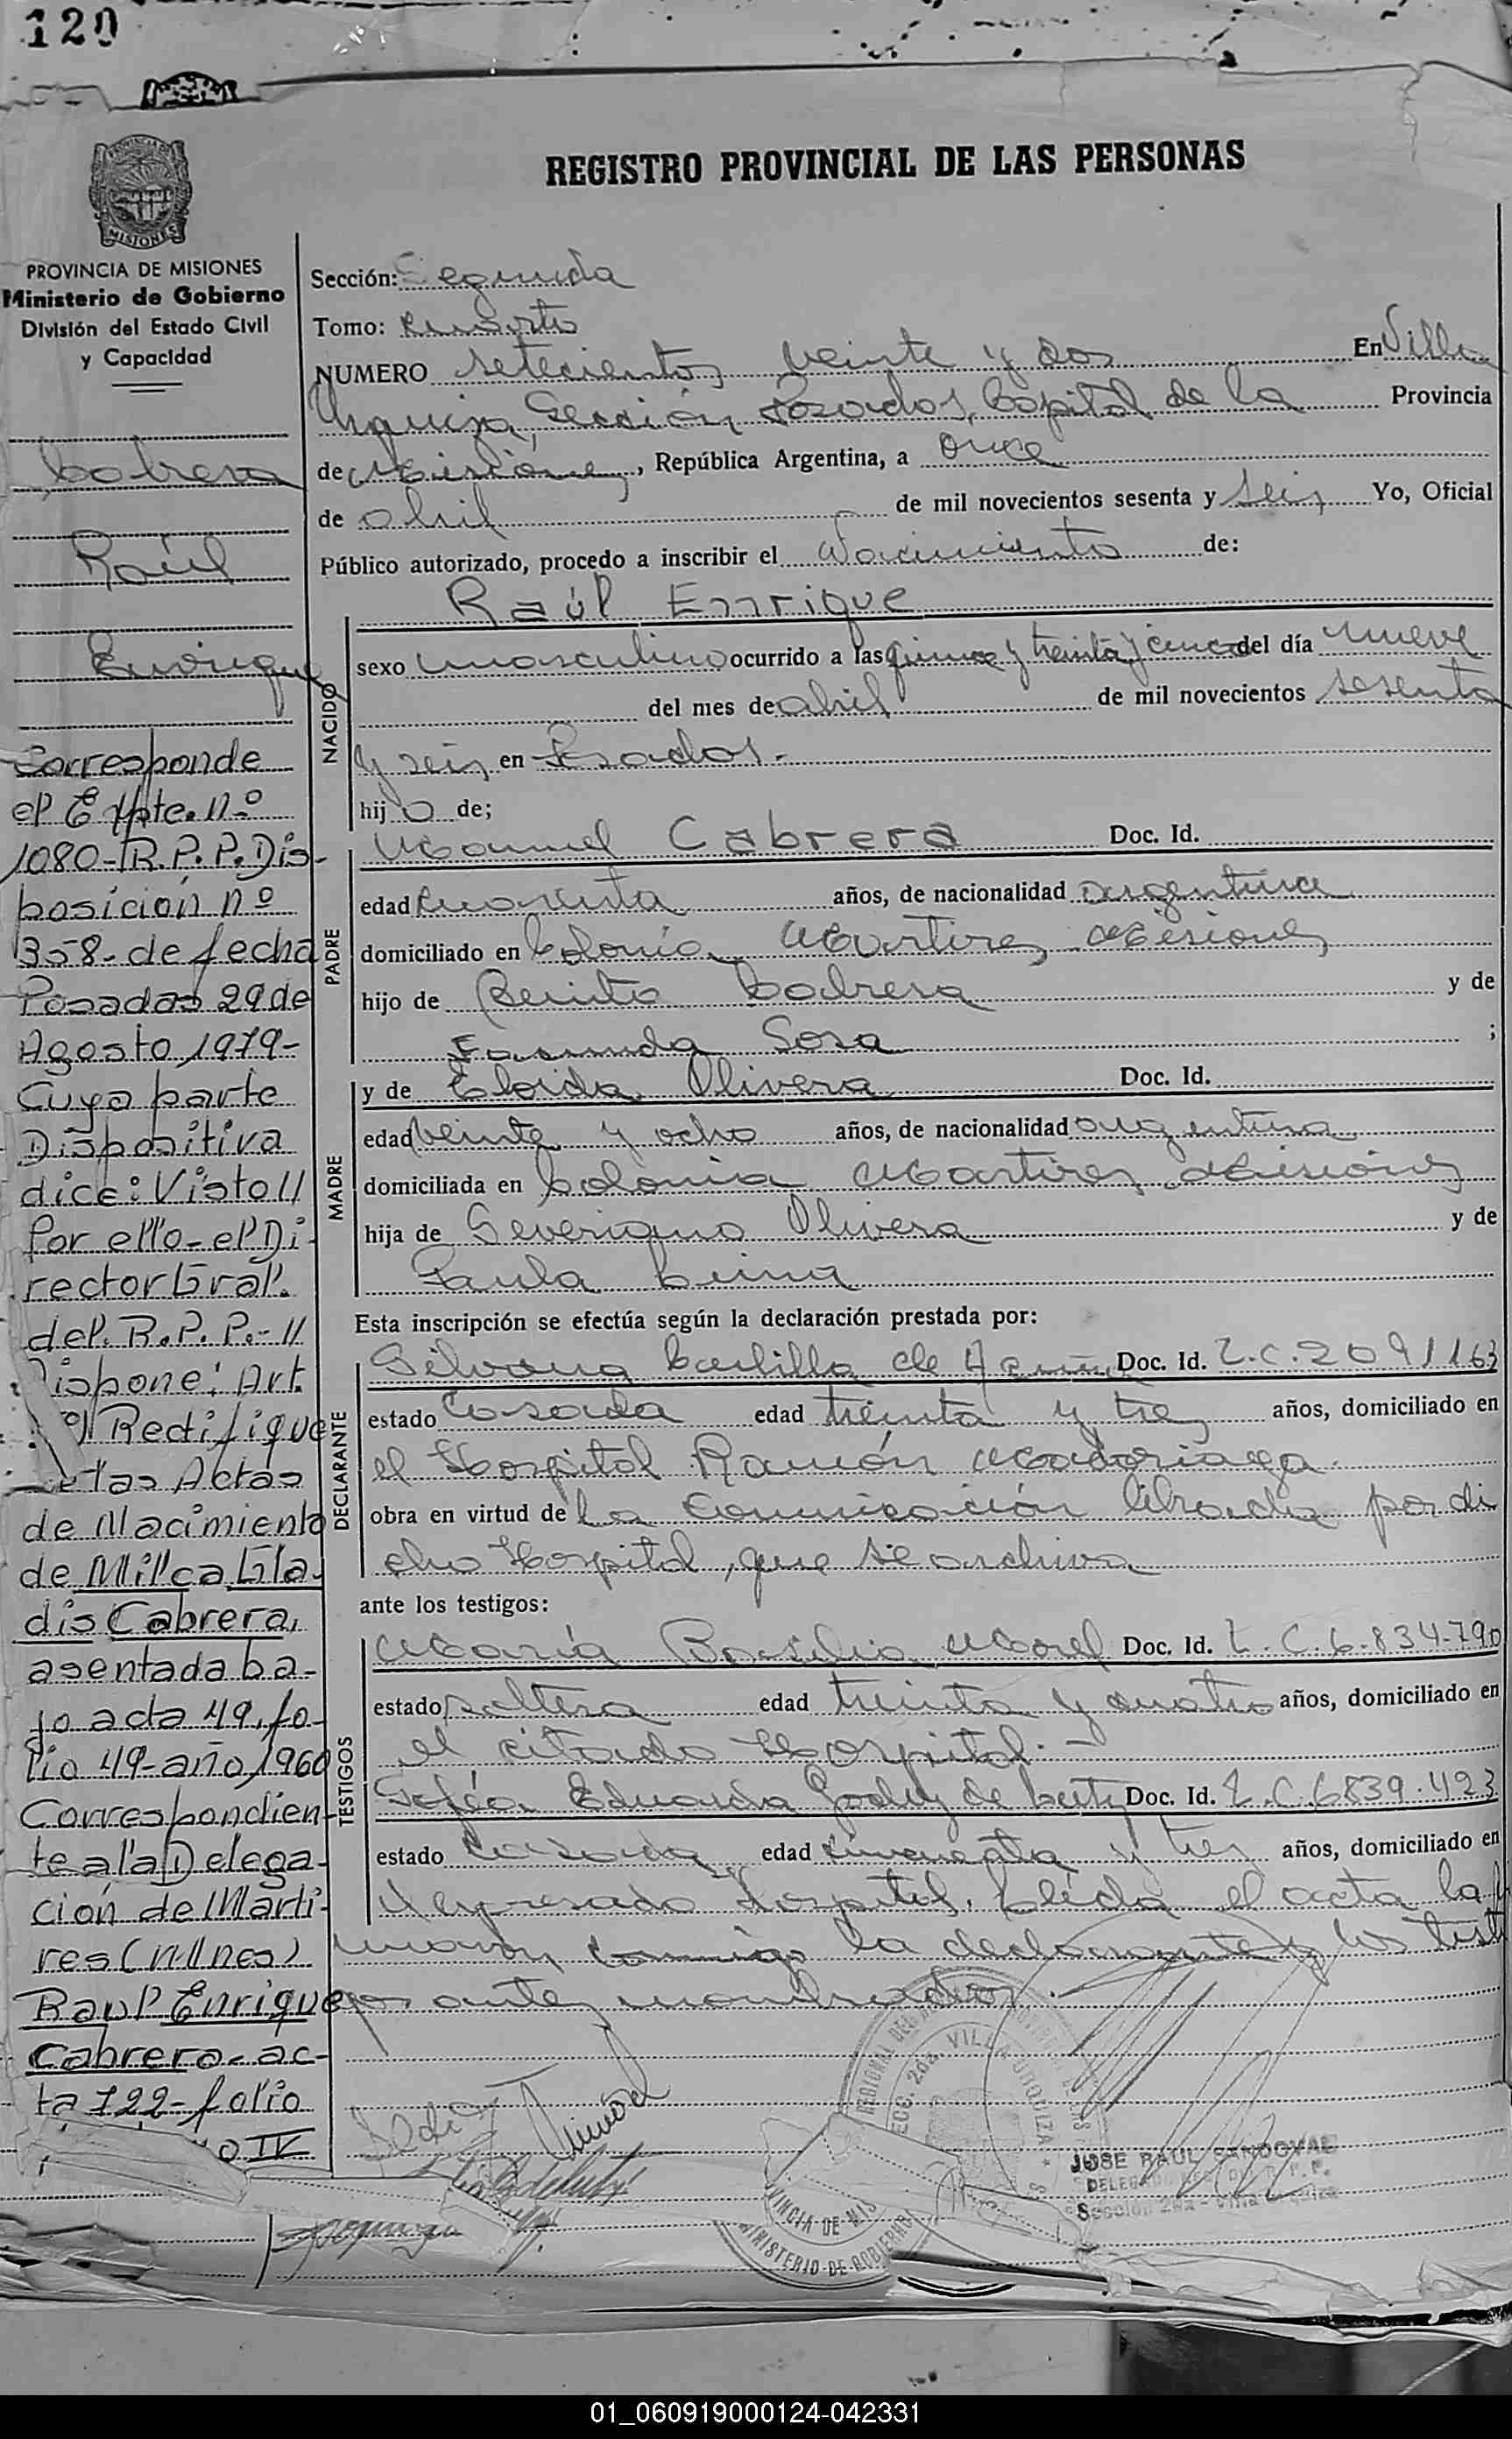 120
REGISTRO PROVINCIAL DE LAS PERSONAS
MISIONES
PROVINCIA DE MISIONES
Ministerio de Gobierno
División del Estado Civil
y Capacidad
Cabrera
Raúl
Enrique
Corresponde
el Expte. nº
1080-R.P.P. Dis-
posición nº
358- de fecha
Posadas 29 de
Agosto 1979-
Cuya parte
Dispositiva
dice: Visto//
Por ello- el Di-
rector Gral.
del R.P.P.-//
Dispone: Art.
Rectifique
las Actas
de Nacimiento
de Milca Gla-
dis Cabrera,
asentada ba-
jo acta 49, fo-
lio 49- año 1960
Correspondien-
te a la Delega-
ción de Marti-
res (Mnes)
Raul Enrique
Cabrera- ac-
ta 722- folio
IV
Sección: Segunda
Tomo: cuarto
NUMERO setecientos veinte y dos En Villa
Urquiza, Sección Posadas, Capital de la Provincia
de Misiones, República Argentina, a once
de abril de mil novecientos sesenta y seis Yo, Oficial
Público autorizado, procedo a inscribir el Nacimiento de:
NACIDO
Raúl Enrique
sexo masculino ocurrido a las quince y treinta y cinco del día nueve
del mes de abril de mil novecientos sesenta
y seis en Posados.-
hijo de;
PADRE
Manuel Cabrera Doc. Id.
edad cuarenta años, de nacionalidad argentina
domiciliado en Colonia Martires Misiones
hijo de Benito Cabrera y de
Facunda Sosa ;
MADRE
y de Eloida Olivera Doc. Id.
edad veinte y ocho años, de nacionalidad argentina
domiciliada en Colonia Martires Misiones
hija de Severiano Olivera y de
Paula Lima
Esta inscripción se efectúa según la declaración prestada por:
DECLARANTE
Silvana Castillo de Doc. Id. L.C. 2091163
estado Casada edad treinta y tres años, domiciliado en
el Hospital Ramón Madariaga.
obra en virtud de La Comunicación librada por di
cho Hospital, que se archiva
ante los testigos:
TESTIGOS
María Basilia Morel Doc. Id. L.C. 6.834.790
estado soltera edad treinta y cuatro años, domiciliado en
el citado Hospital.-
Eduarda Godoy de Doc. Id. L.C. 6839.423
estado Casada edad cincuenta y tres años, domiciliado en
el expresado Hospital. Leída el acta la fir
maron conmigo la declarante y los testi
gos antes nombrados.
SECC. 2da. VILLA URQUIZA
PROVINCIA DE MIS
MINISTERIO DE GOBIERNO
JOSE RAUL SANDOVAL
DELEGADO
Sección 2da - Villa Urquiza
01_060919000124-042331